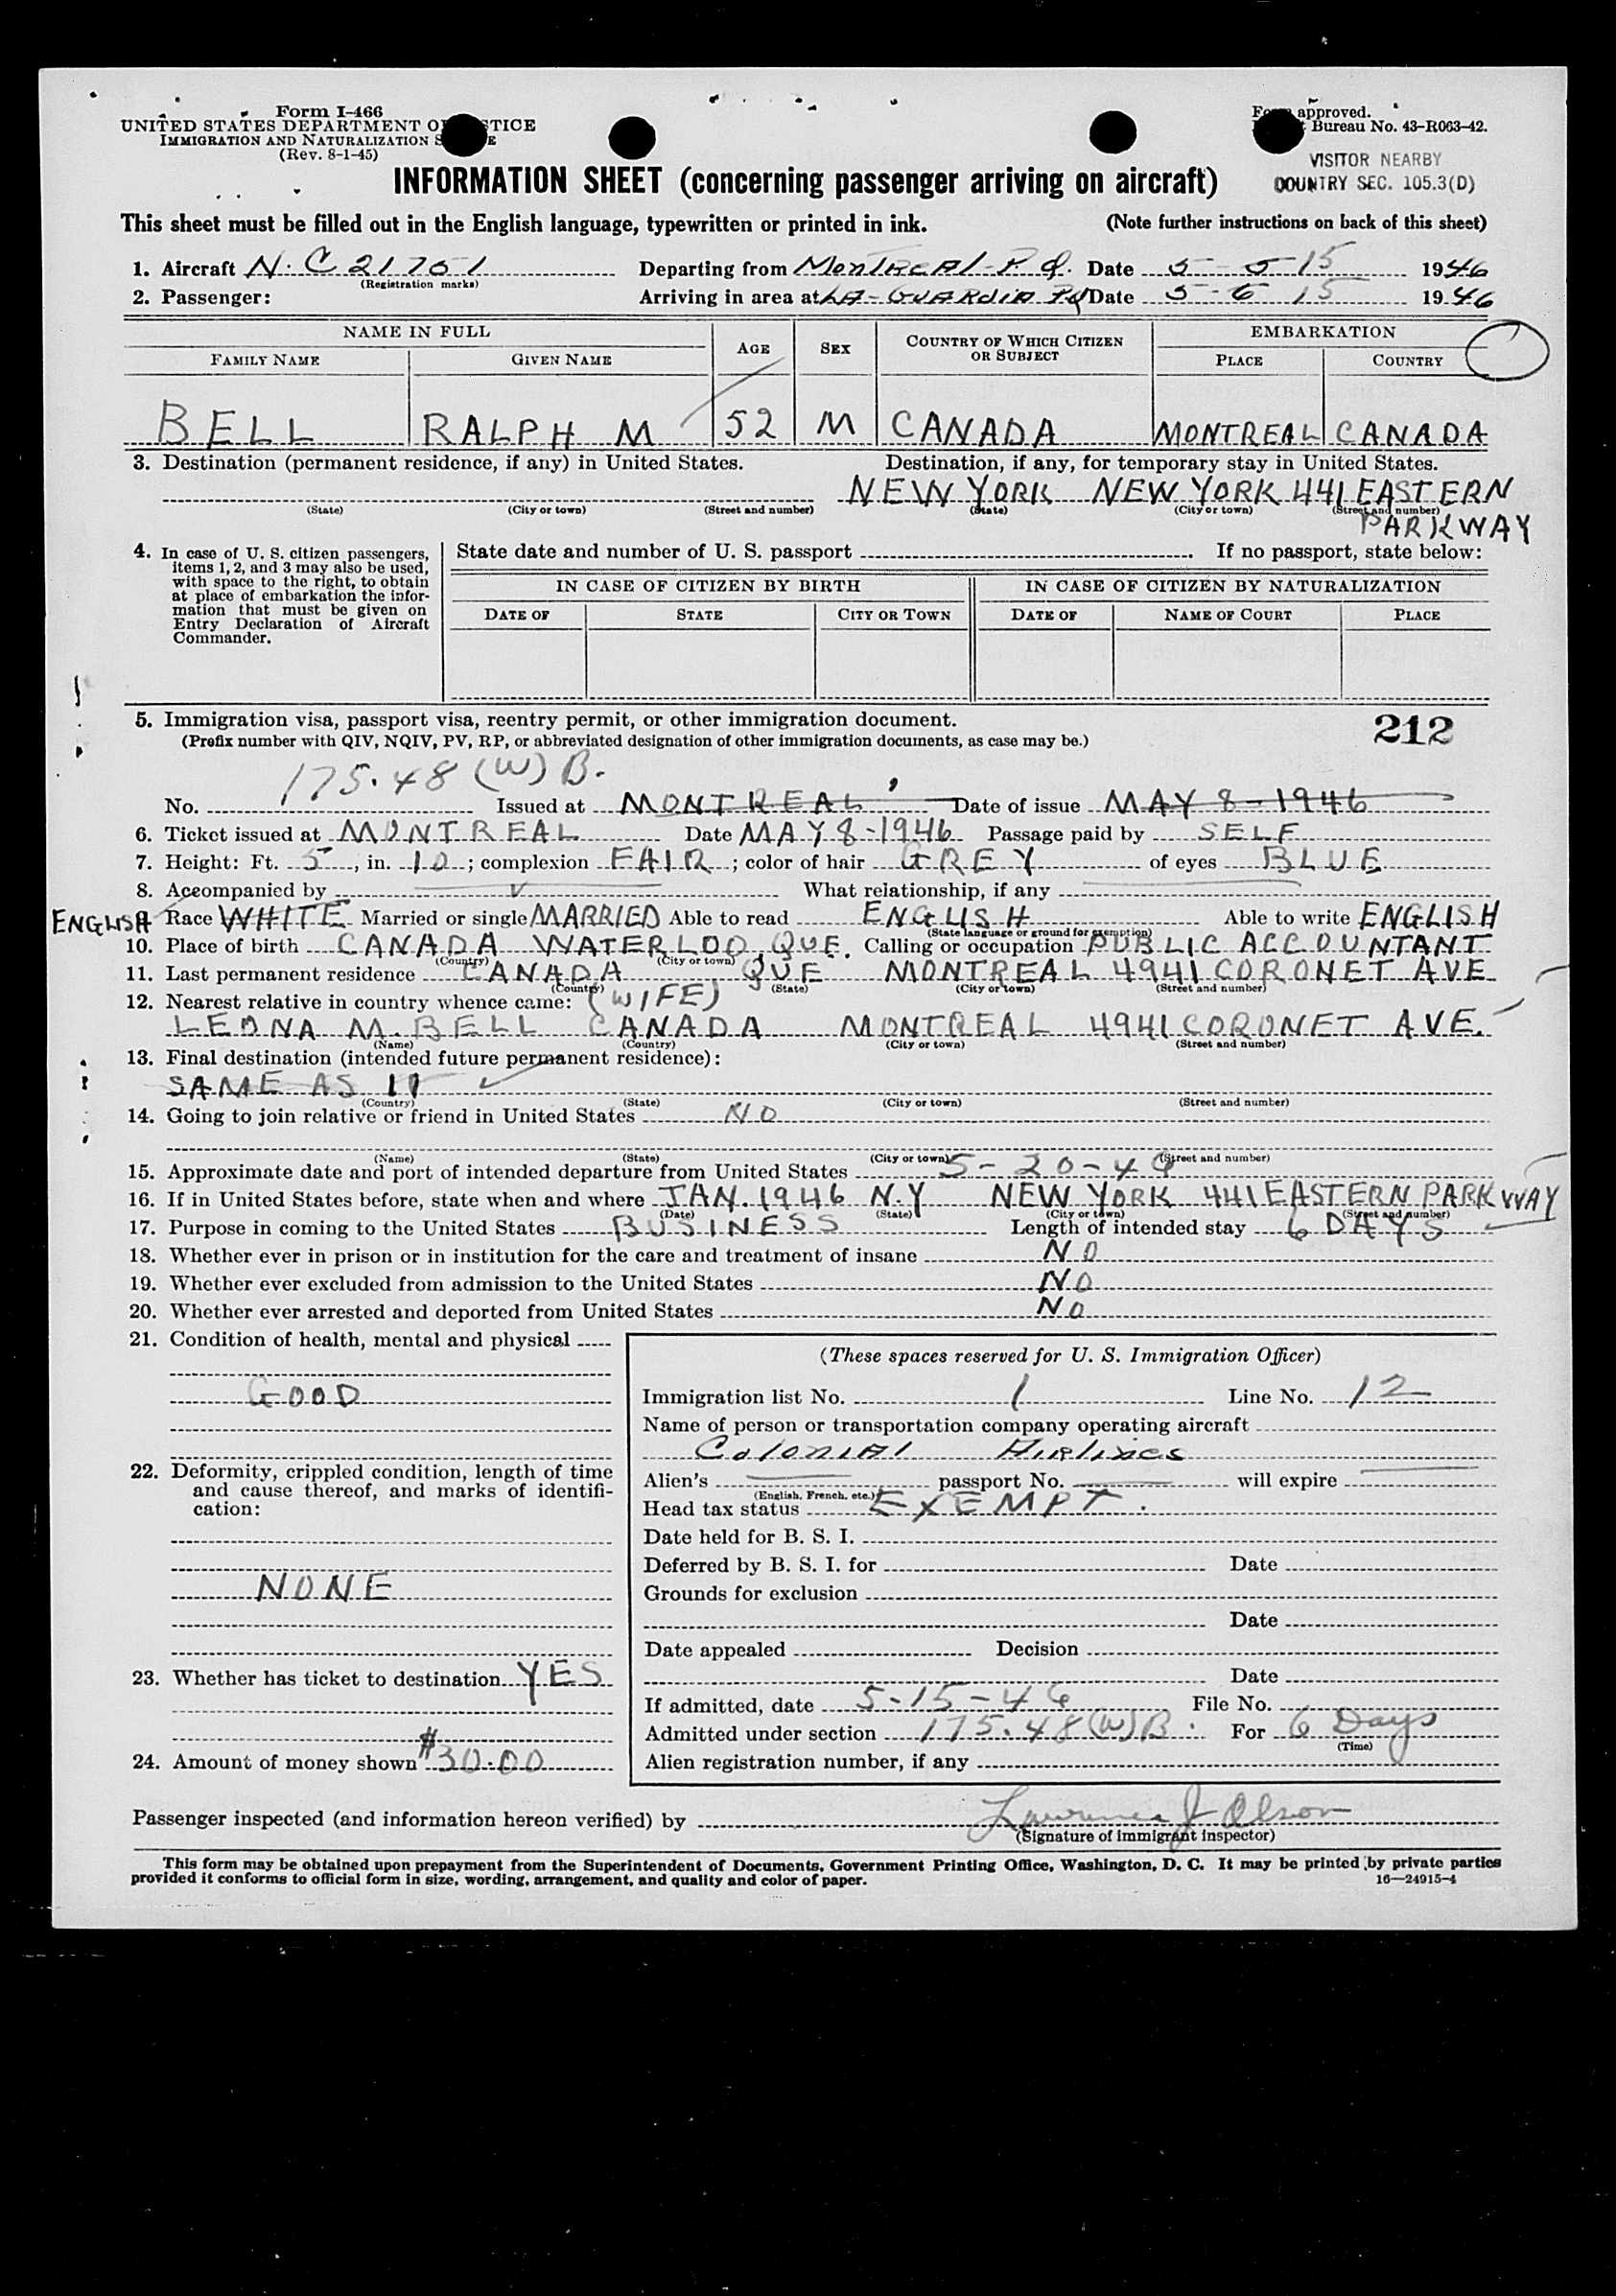 Form I-466
UNITED STATES DEPARTMENT OF JUSTICE
IMMIGRATION AND NATURALIZATION S E
(Rev. 8-1-45)
Form approved.
Bureau No. 43-R063-42.
VISITOR NEARBY
COUNTRY SEC. 105.3(D)
INFORMATION SHEET (concerning passenger arriving on aircraft)
This sheet must be filled out in the English language, typewritten or printed in ink. (Note further instructions on back of this sheet)
1. Aircraft N.C 21751 Departing from MONTREAL-P.Q. Date 5 15 1946
(Registration marks)
2. Passenger: Arriving in area at LA-GUARDIA Date 5 15 1946
NAME IN FULL AGE SEX COUNTRY OF WHICH CITIZEN OR SUBJECT EMBARKATION
FAMILY NAME GIVEN NAME PLACE COUNTRY
BELL RALPH M 52 M CANADA MONTREAL CANADA
3. Destination (permanent residence, if any) in United States. Destination, if any, for temporary stay in United States.
NEW YORK NEW YORK 441 EASTERN
(State) (City or town) (Street and number) (State) (City or town) (Street and number)
PARKWAY
4. In case of U. S. citizen passengers, items 1, 2, and 3 may also be used, with space to the right, to obtain at place of embarkation the information that must be given on Entry Declaration of Aircraft Commander.
State date and number of U. S. passport If no passport, state below:
IN CASE OF CITIZEN BY BIRTH IN CASE OF CITIZEN BY NATURALIZATION
DATE OF STATE CITY OR TOWN DATE OF NAME OF COURT PLACE
5. Immigration visa, passport visa, reentry permit, or other immigration document. 212
(Prefix number with QIV, NQIV, PV, RP, or abbreviated designation of other immigration documents, as case may be.)
175.48 (W) B.
No. Issued at MONTREAL Date of issue MAY 8-1946
6. Ticket issued at MONTREAL Date MAY 8-1946 Passage paid by SELF
7. Height: Ft. 5, in. 10; complexion FAIR; color of hair GREY of eyes BLUE
8. Accompanied by What relationship, if any
ENGLISH 9. Race WHITE Married or single MARRIED Able to read ENGLISH Able to write ENGLISH
(State language or ground for exemption)
10. Place of birth CANADA WATERLOO, QUE. Calling or occupation PUBLIC ACCOUNTANT
(Country) (City or town)
11. Last permanent residence CANADA QUE MONTREAL 4941 CORONET AVE
(Country) (State) (City or town) (Street and number)
12. Nearest relative in country whence came: (WIFE)
LEONA M. BELL CANADA MONTREAL 4941 CORONET AVE.
(Name) (Country) (City or town) (Street and number)
13. Final destination (intended future permanent residence):
SAME AS 11
(Country) (State) (City or town) (Street and number)
14. Going to join relative or friend in United States NO
(Name) (State) (City or town) (Street and number)
15. Approximate date and port of intended departure from United States 5-20-46
16. If in United States before, state when and where JAN. 1946 N.Y NEW YORK 441 EASTERN PARKWAY
(Date) (State) (City or town) (Street and number)
17. Purpose in coming to the United States BUSINESS Length of intended stay 6 DAYS
18. Whether ever in prison or in institution for the care and treatment of insane NO
19. Whether ever excluded from admission to the United States NO
20. Whether ever arrested and deported from United States NO
21. Condition of health, mental and physical
GOOD
22. Deformity, crippled condition, length of time and cause thereof, and marks of identification:
NONE
23. Whether has ticket to destination YES
24. Amount of money shown $30.00
(These spaces reserved for U. S. Immigration Officer)
Immigration list No. 1 Line No. 12
Name of person or transportation company operating aircraft
Colonial Airlines
Alien's passport No. will expire
(English, French, etc.)
Head tax status EXEMPT.
Date held for B. S. I.
Deferred by B. S. I. for Date
Grounds for exclusion
Date
Date appealed Decision
Date
If admitted, date 5-15-46 File No.
Admitted under section 175.48(W)B. For 6 Days
(Time)
Alien registration number, if any
Passenger inspected (and information hereon verified) by Lawrence J Olson
(Signature of immigrant inspector)
This form may be obtained upon prepayment from the Superintendent of Documents, Government Printing Office, Washington, D. C. It may be printed by private parties
provided it conforms to official form in size, wording, arrangement, and quality and color of paper. 16—24915-4